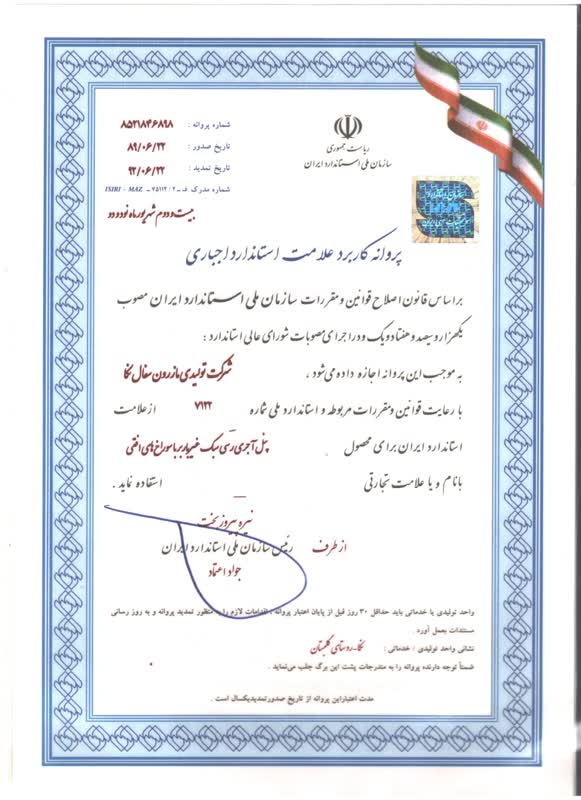 ریاست جمهوری
سازمان ملی استاندارد ایران
شماره پروانه : ۸۵۲۱۸۴۶۸۹۸
تاریخ صدور : ۸۹/۰۶/۲۲
تاریخ تمدید : ۹۲/۰۶/۲۲
شماره مدرک ف ـ ۲ / ۷۵۱۱۲ ـ ISIRI - MAZ
بیست و دوم شهریور ماه نود و دو
پروانه کاربرد علامت استاندارد اجباری
بر اساس قانون اصلاح قوانین و مقررات سازمان ملی استاندارد ایران مصوب
یکهزار و سیصد و هفتاد و یک و در اجرای مصوبات شورای عالی استاندارد :
به موجب این پروانه اجازه داده می‌شود ، شرکت تولیدی مازرون سفال نکا
با رعایت قوانین و مقررات مربوطه و استاندارد ملی شماره ۷۱۲۲ از علامت
استاندارد ایران برای محصول پنل آجری رسی سبک غیرباربر با سوراخ های افقی
با نام و یا علامت تجارتی ــ استفاده نماید .
نیره پیروزبخت
رئیس سازمان ملی استاندارد ایران
از طرف
جواد اعتماد
واحد تولیدی یا خدماتی باید حداقل ۳۰ روز قبل از پایان اعتبار پروانه ، اقدامات لازم را به منظور تمدید پروانه و به روز رسانی
مستندات بعمل آورد .
نشانی واحد تولیدی / خدماتی : نکا-روستای گلبستان
ضمناً توجه دارنده پروانه را به مندرجات پشت این برگ جلب می‌نماید .
مدت اعتبار این پروانه از تاریخ صدور تمدید یکسال است .